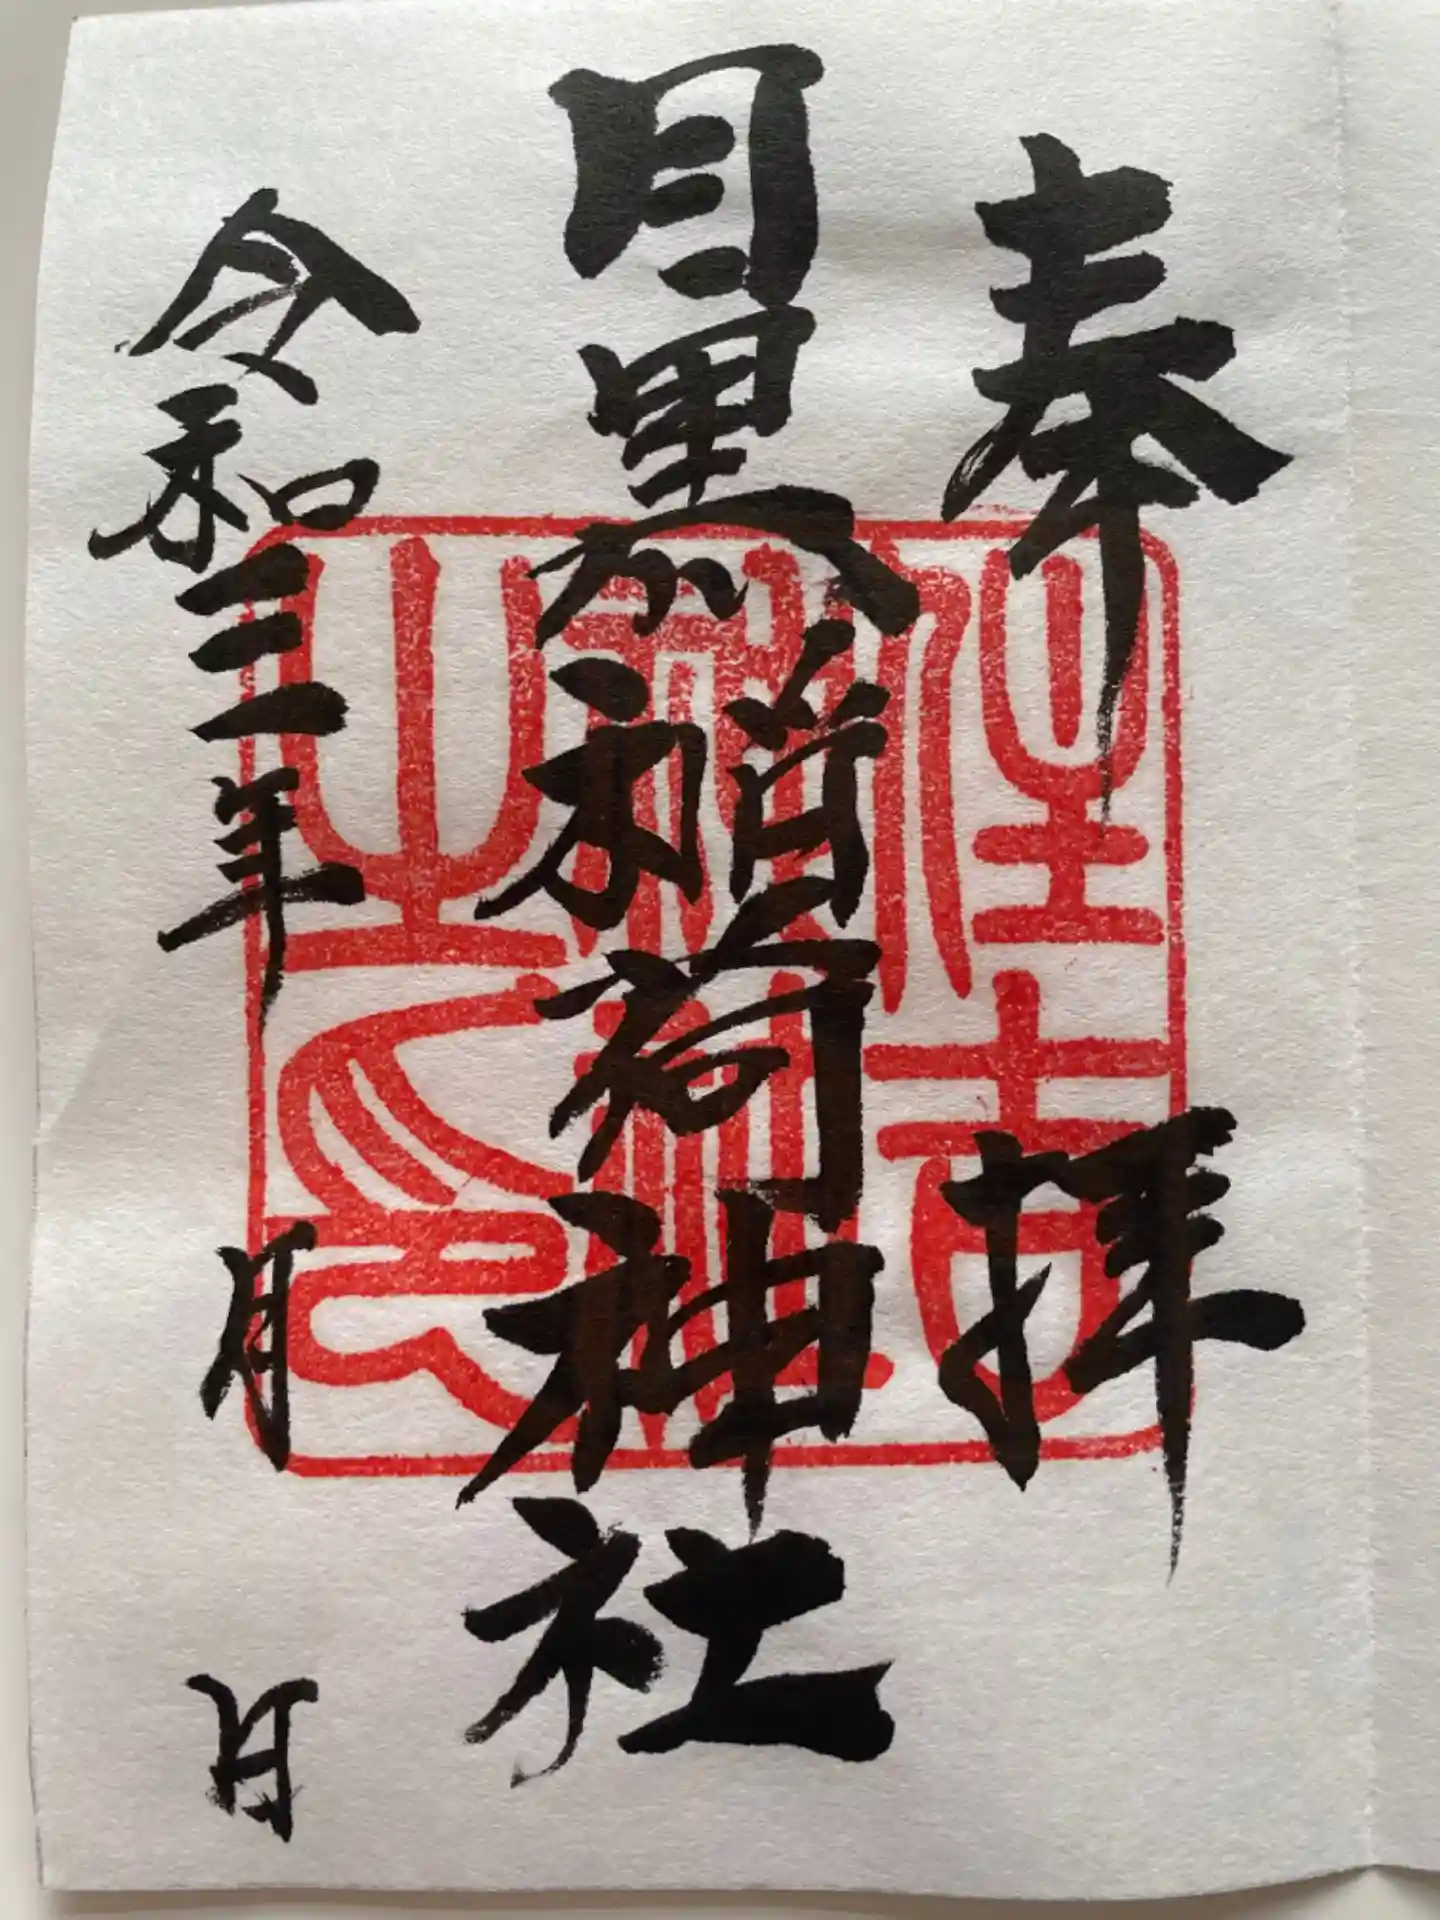 奉拝
目黒稲荷神社
令和三年 月 日
住吉
神社
之印